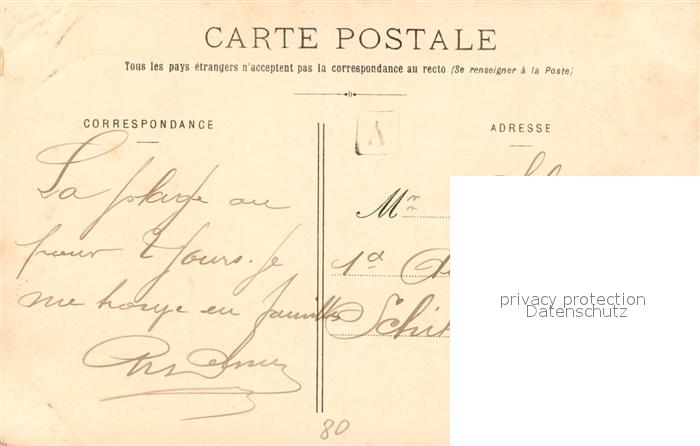 CARTE POSTALE
Tous les pays étrangers n'acceptent pas la correspondance au recto (Se renseigner à la Poste)
CORRESPONDANCE
ADRESSE
A
La plage ou
pour 2 jours. Je
me trouve en famille
M
1a
Schi
privacy protection
Datenschutz
80